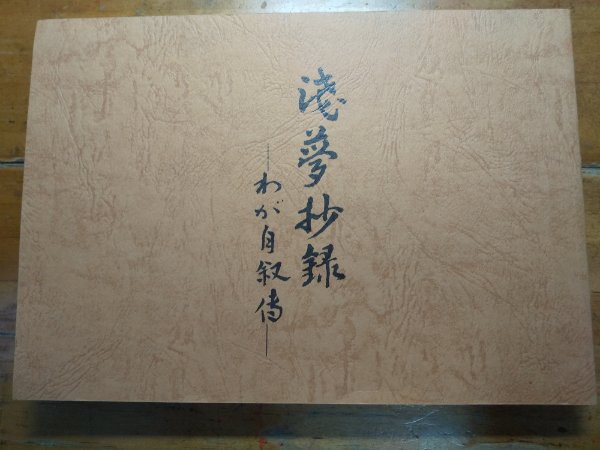 淺夢抄録
―わが自叙傳―